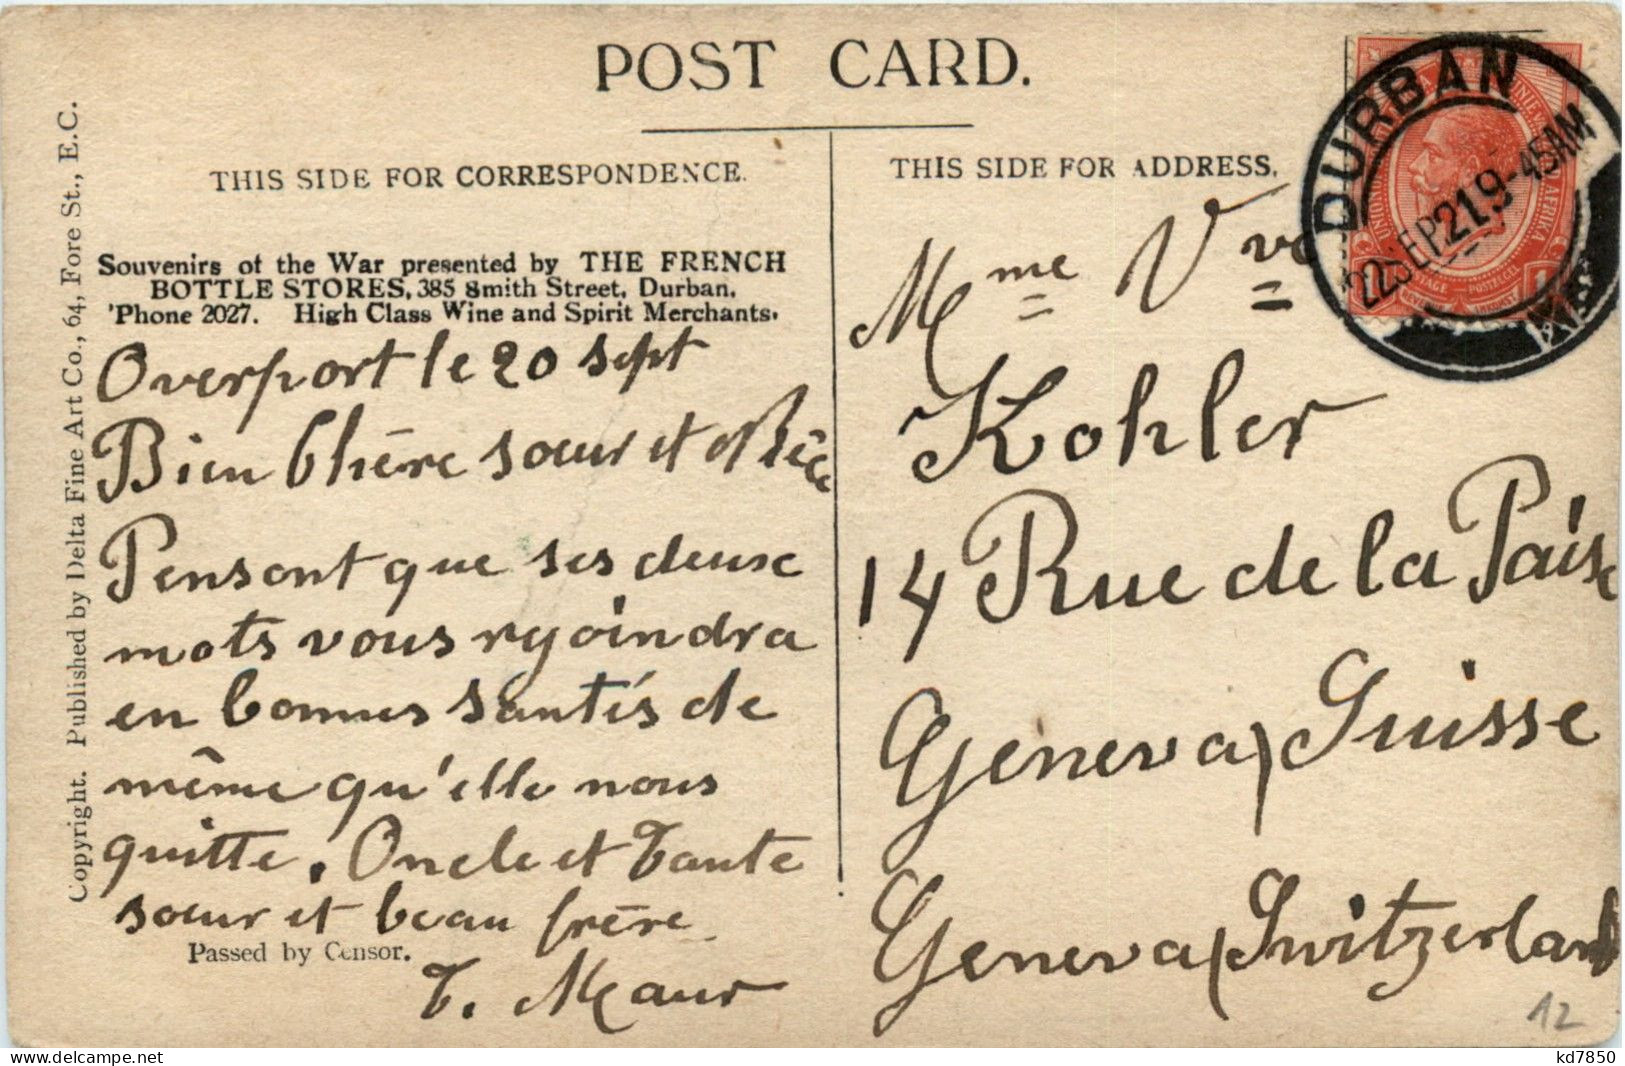 POST CARD.
THIS SIDE FOR CORRESPONDENCE.
Souvenirs of the War presented by THE FRENCH
BOTTLE STORES, 385 Smith Street, Durban.
'Phone 2027. High Class Wine and Spirit Merchants.
Overport le 20 sept
Bien Chère sœur et
Pensant que ses deux
mots vous rejoindra
en bonnes santés de
même qu'elle nous
quitte. Oncle et Tante
sœur et beau frère
Passed by Censor.
T. Maur
Copyright. Published by Delta Fine Art Co., 64, Fore St., E.C.
THIS SIDE FOR ADDRESS.
Mme Vve
Kohler
14 Rue de la Paix
Geneva Suisse
Geneva Switzerland
DURBAN
22 SEP 21 9-45 AM
12
kd7850